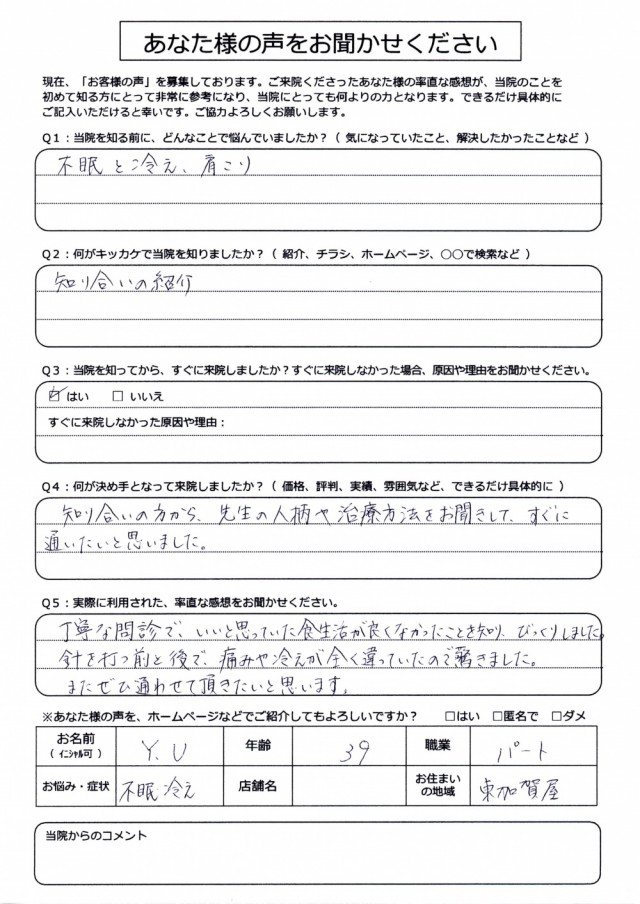 あなた様の声をお聞かせください
現在、「お客様の声」を募集しております。ご来院くださったあなた様の率直な感想が、当院のことを
初めて知る方にとって非常に参考になり、当院にとっても何よりの力となります。できるだけ具体的に
ご記入いただけると幸いです。ご協力よろしくお願いします。
Q1：当院を知る前に、どんなことで悩んでいましたか？（ 気になっていたこと、解決したかったことなど ）
不眠と冷え、肩こり
Q2：何がキッカケで当院を知りましたか？（ 紹介、チラシ、ホームページ、〇〇で検索など ）
知り合いの紹介
Q3：当院を知ってから、すぐに来院しましたか？すぐに来院しなかった場合、原因や理由をお聞かせください。
☑はい □ いいえ
すぐに来院しなかった原因や理由：
Q4：何が決め手となって来院しましたか？（ 価格、評判、実績、雰囲気など、できるだけ具体的に ）
知り合いの方から、先生の人柄や治療方法をお聞きして、すぐに
通いたいと思いました。
Q5：実際に利用された、率直な感想をお聞かせください。
丁寧な問診で、いいと思っていた食生活が良くなかったことを知り、びっくりしました。
針を打つ前と後で、痛みや冷えが全く違っていたので驚きました。
またぜひ通わせて頂きたいと思います。
※あなた様の声を、ホームページなどでご紹介してもよろしいですか？ □はい □匿名で □ダメ
お名前 Y.U 年齢 39 職業 パート
（ｲﾆｼｬﾙ可）
お悩み・症状 不眠 冷え 店舗名 お住まい 東加賀屋
の地域
当院からのコメント